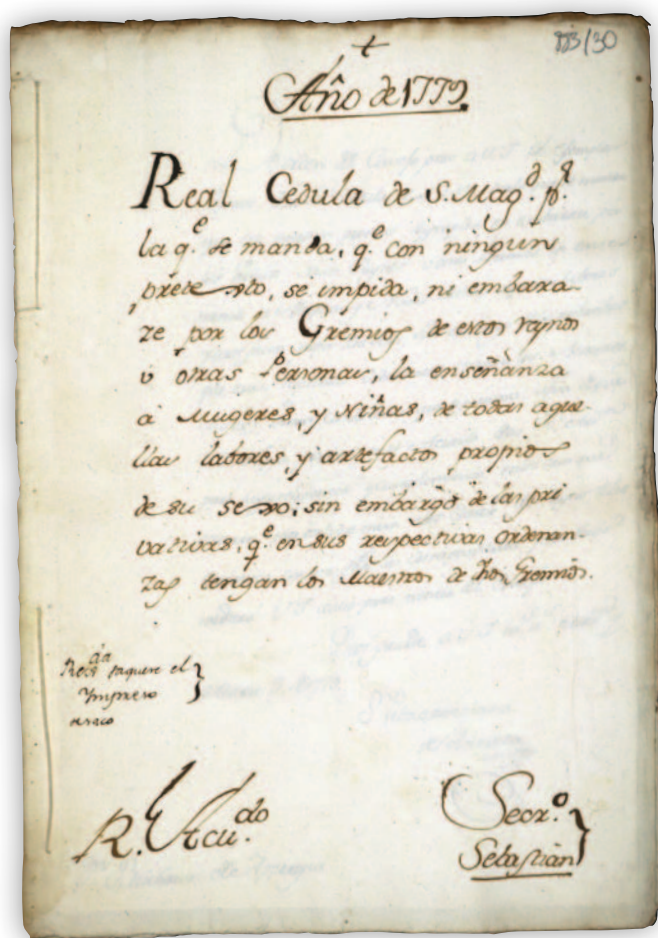 †
Año de 1779.
Real Cedula de S. Mag.d p.r
la q.e se manda, q.e con ningun
pretexto, se impida, ni embara-
ze por los Gremios de estos reynos
ù otras Personas, la enseñanza
à Mugeres, y Niñas, de todas aque-
llas labores, y artefactos propios
de su sexo; sin embargo de las pri
vativas, q.e en sus respectivas ordenan-
zas tengan los Maestros de dhos Gremios.
saquese el
Ympreso
R. Acu.do
Secr.o
Sebastian